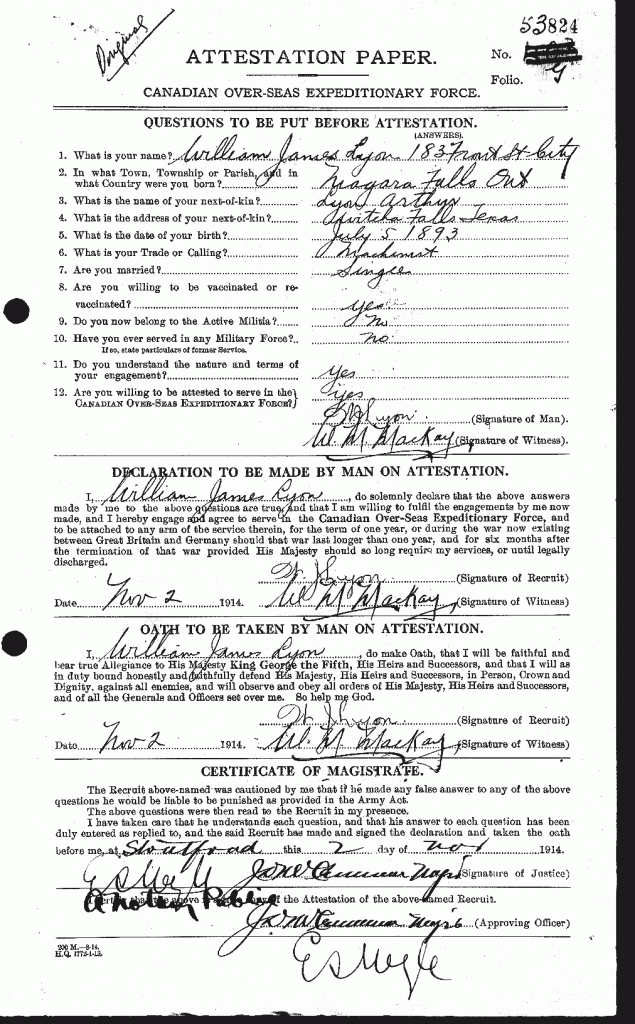 Original
53824
ATTESTATION PAPER.
No.
Folio.
CANADIAN OVER-SEAS EXPEDITIONARY FORCE.
QUESTIONS TO BE PUT BEFORE ATTESTATION.
(ANSWERS).
1. What is your name? William James Lyon 183 Front St City
2. In what Town, Township or Parish, and in
what Country were you born? Niagara Falls Ont
3. What is the name of your next-of-kin? Lyon Arthur
4. What is the address of your next-of-kin? Falls Texas
5. What is the date of your birth? July 5 1893
6. What is your Trade or Calling? Machinist
7. Are you married? Single
8. Are you willing to be vaccinated or re-
vaccinated? yes
9. Do you now belong to the Active Militia? No
10. Have you ever served in any Military Force? no
If so, state particulars of former Service.
11. Do you understand the nature and terms of
your engagement? yes
12. Are you willing to be attested to serve in the yes
CANADIAN OVER-SEAS EXPEDITIONARY FORCE?
Lyon (Signature of Man).
W M MacKay (Signature of Witness).
DECLARATION TO BE MADE BY MAN ON ATTESTATION.
I, William James Lyon, do solemnly declare that the above answers
made by me to the above questions are true, and that I am willing to fulfil the engagements by me now
made, and I hereby engage and agree to serve in the Canadian Over-Seas Expeditionary Force, and
to be attached to any arm of the service therein, for the term of one year, or during the war now existing
between Great Britain and Germany should that war last longer than one year, and for six months after
the termination of that war provided His Majesty should so long require my services, or until legally
discharged.
W J Lyon (Signature of Recruit)
Date Nov 2 1914. W M MacKay (Signature of Witness)
OATH TO BE TAKEN BY MAN ON ATTESTATION.
I, William James Lyon, do make Oath, that I will be faithful and
bear true Allegiance to His Majesty King George the Fifth, His Heirs and Successors, and that I will as
in duty bound honestly and faithfully defend His Majesty, His Heirs and Successors, in Person, Crown and
Dignity, against all enemies, and will observe and obey all orders of His Majesty, His Heirs and Successors,
and of all the Generals and Officers set over me. So help me God.
W J Lyon (Signature of Recruit)
Date Nov 2 1914. W. M MacKay (Signature of Witness)
CERTIFICATE OF MAGISTRATE.
The Recruit above-named was cautioned by me that if he made any false answer to any of the above
questions he would be liable to be punished as provided in the Army Act.
The above questions were then read to the Recruit in my presence.
I have taken care that he understands each question, and that his answer to each question has been
duly entered as replied to, and the said Recruit has made and signed the declaration and taken the oath
before me, at Stratford this 2 day of Nov 1914.
(Signature of Justice)
A Notary Public
I certify that the above is a true copy of the Attestation of the above-named Recruit.
(Approving Officer)
200 M.—8-14.
H.Q. 1772-1-13.